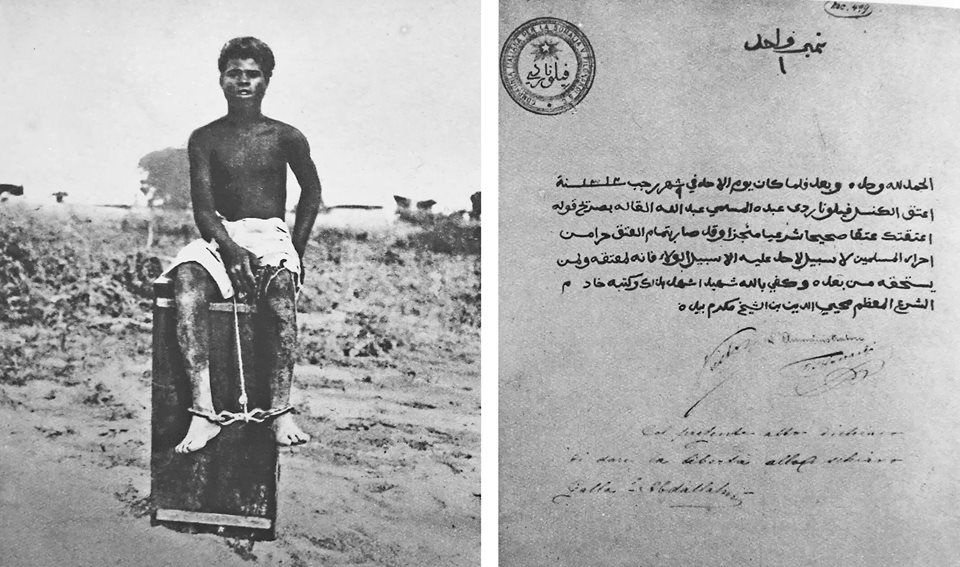 No. 499
نمبر واحد
١
فيلوناردي
الحمد لله وحده وبعد فلما كان يوم الاحد في شهر رجب سنة
اعتق الكنسل فيلوناردي عبده المسمى عبد الله القاله بصريح قوله
اعتقتك عتقا صحيحا شرعيا منجزا وقد صار بتمام العتق حرا من
احرار المسلمين لا سبيل لاحد عليه الا سبيل الولاء فانه لمعتقه ولمن
يستحقه من بعده وكفى بالله شهيدا شهد بذلك وكتبه خادم
الشرع المعظم محيي الدين بن الشيخ مكدم بيده
Col presente atto dichiaro
di dare la libertà allo schiavo
Galla Abdallah